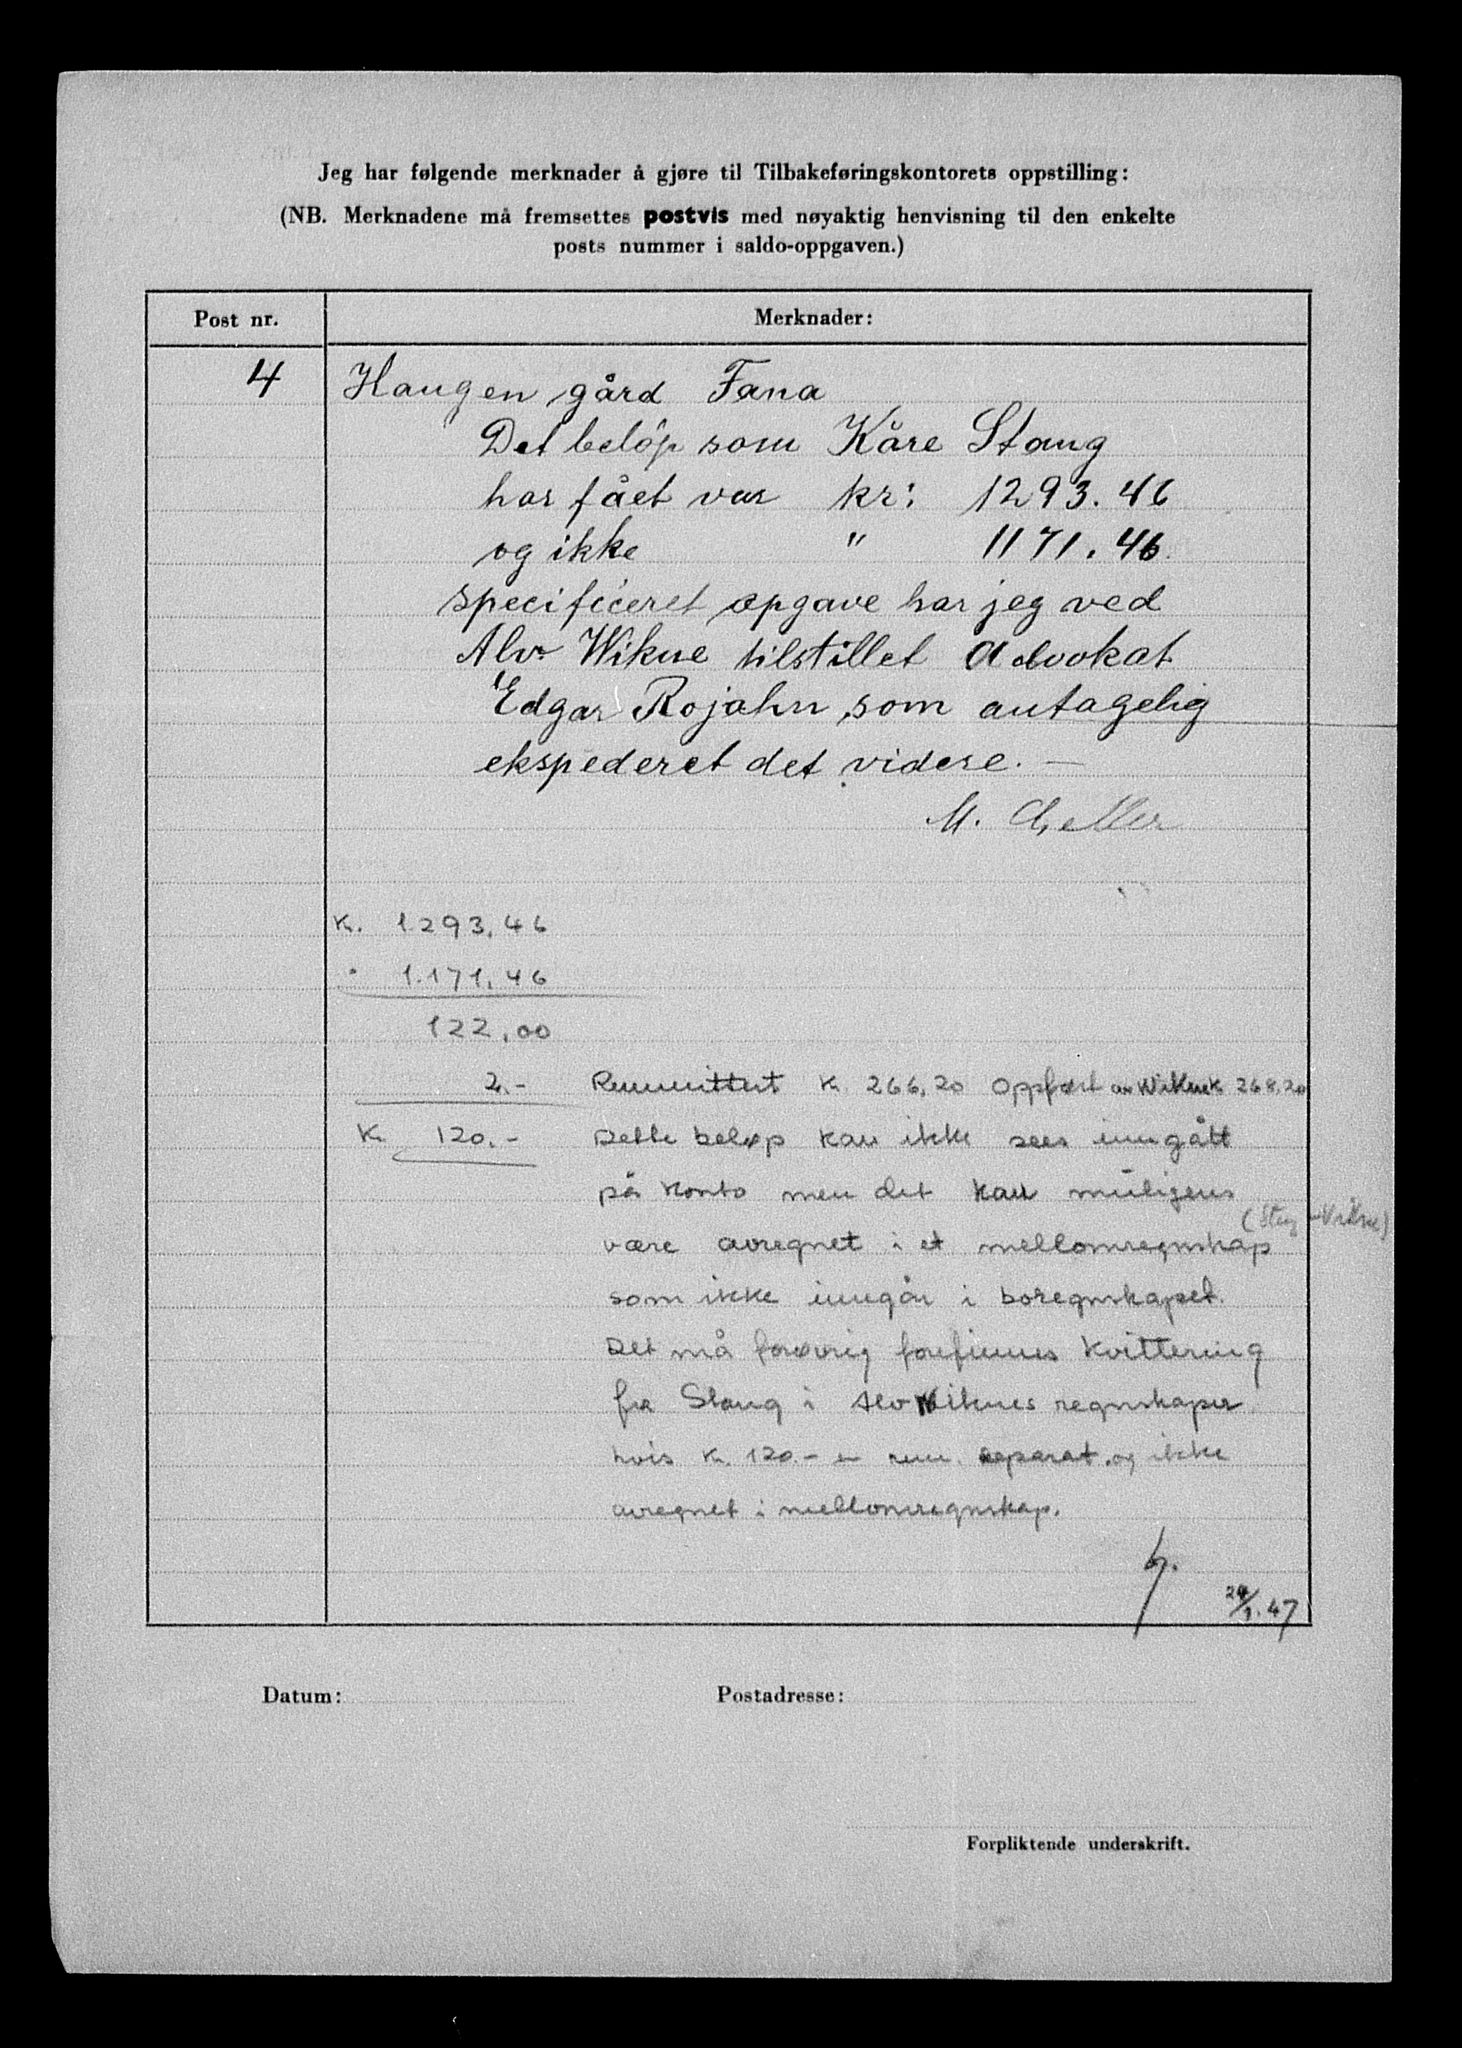 Jeg har følgende merknader å gjøre til Tilbakeføringskontorets oppstilling:
(NB. Merknadene må fremsettes postvis med nøyaktig henvisning til den enkelte
posts nummer i saldo-oppgaven.)
Post nr.
Merknader:
4 Haugen gård Fana
Det beløp som Kåre Stang
har fået var kr: 1293.46
og ikke " 1171.46
specificeret opgave har jeg ved
Alv Wikne tilstillet Advokat
Edgar Rojahn, som antagelig
ekspederet det videre. —
M.
K. 1.293,46
" 1.171,46
122,00
2.- Remmittert K. 266,20 Oppført av Wikne K 268,20
K. 120.- Dette beløp kan ikke sees inngått
på konto men det kan muligens
(Stang - Vikne)
være avregnet i et mellomregnskap
som ikke inngår i boregnskapet.
Det må forøvrig forefinnes kvittering
fra Stang i Alv Wiknes regnskaper
hvis K. 120.- er rem. separat og ikke
avregnet i mellomregnskap.
24/1.47
Datum:
Postadresse:
Forpliktende underskrift.